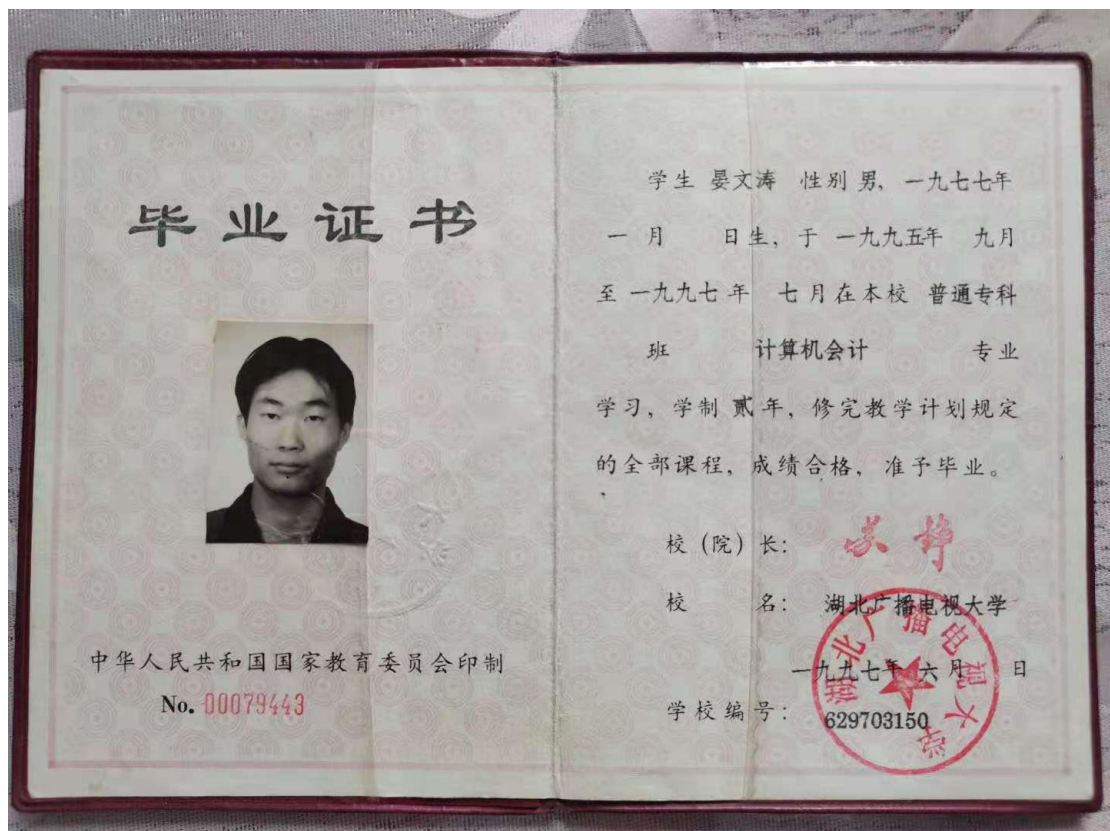 毕业证书
中华人民共和国国家教育委员会印制
No. 00079443
学生 晏文涛 性别 男, 一九七七年
一 月 日生, 于 一九九五年 九月
至 一九九七 年 七 月在本校 普通专科
班 计算机会计 专业
学习, 学制 贰 年, 修完教学计划规定
的全部课程, 成绩合格, 准予毕业。
校 (院) 长:
校 名: 湖北广播电视大学
一九九七年 六月 日
学校编号: 629703150
湖北广播电视大学